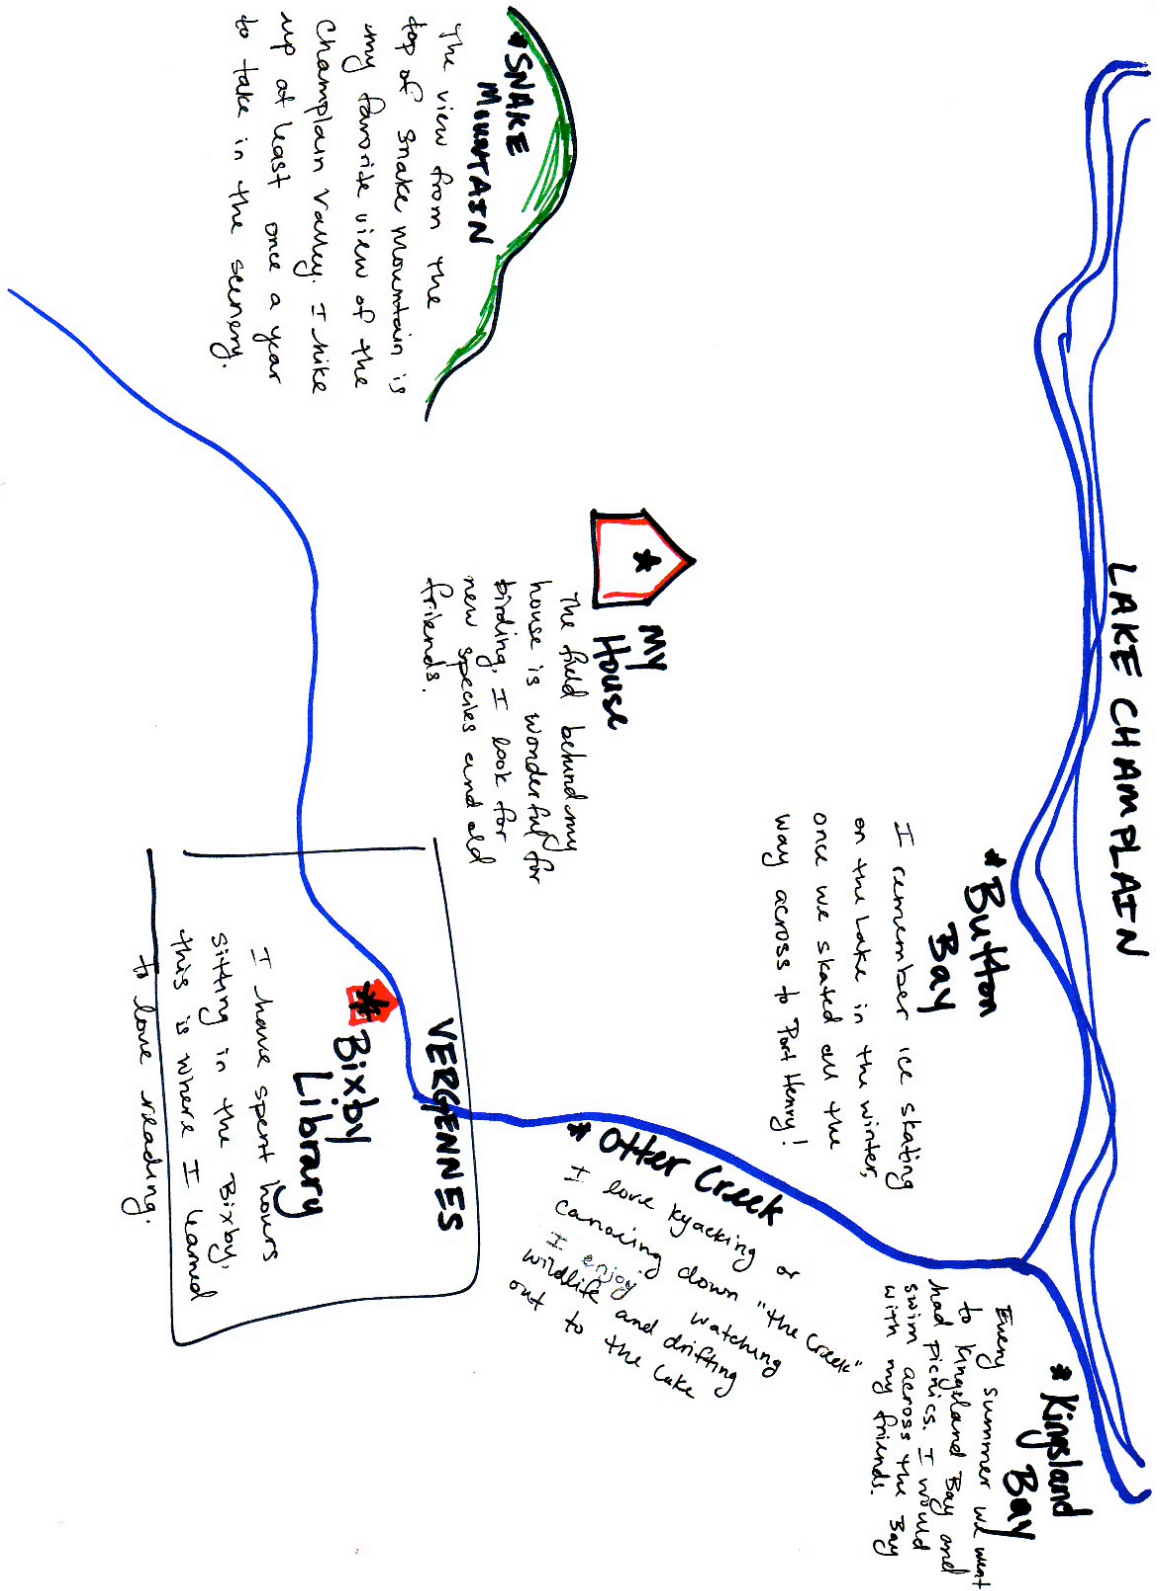 LAKE CHAMPLAIN
* SNAKE
MOUNTAIN
The view from the
top of snake mountain is
my favorite view of the
Champlain Valley. I hike
up at least once a year
to take in the scenery.
My
House
The field behind my
house is wonderful for
birding, I look for
new species and old
friends.
* Button
Bay
I remember ice skating
on the Lake in the winter,
once we skated all the
way across to Port Henry!
* Kingsland
Bay
Every summer we went
to Kingsland Bay and
had picnics. I would
swim across the Bay
with my friends.
* Otter Creek
I love kyacking or
canoeing down "the creek"
I enjoy watching
wildlife and drifting
out to the lake
VERGENNES
* Bixby
Library
I have spent hours
sitting in the Bixby,
this is where I learned
to love reading.